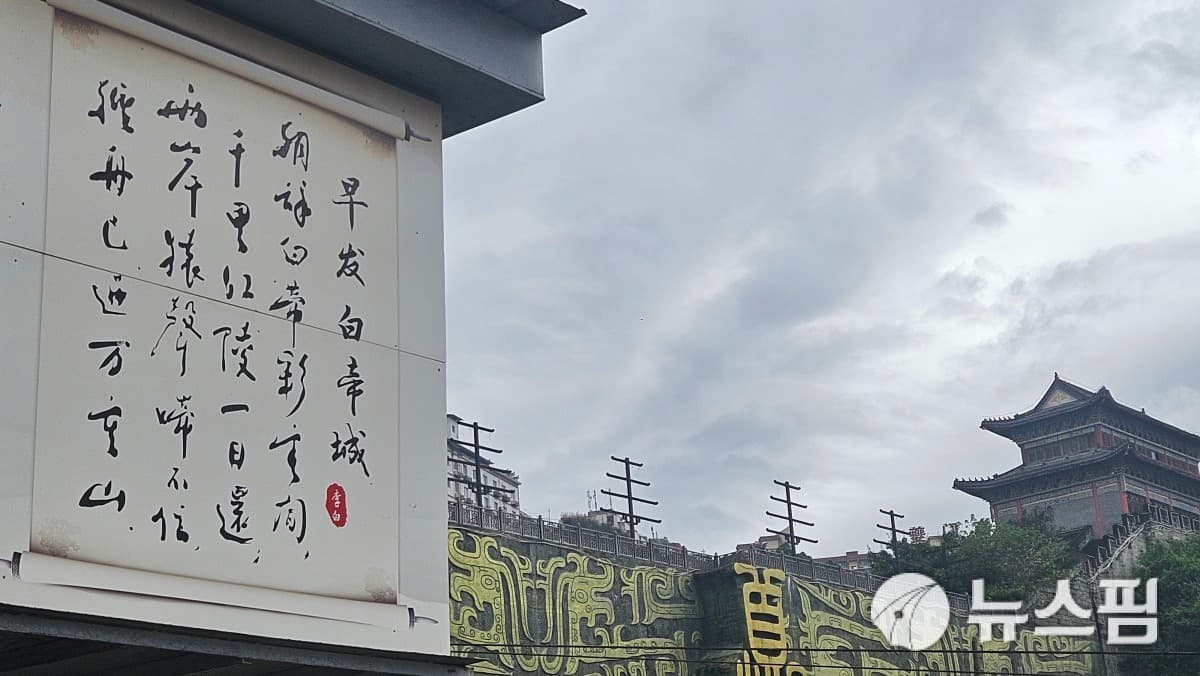 早发白帝城
李白
朝辞白帝彩雲间,
千里江陵一日還,
两岸猿聲啼不住,
輕舟已過万重山.
뉴스핌